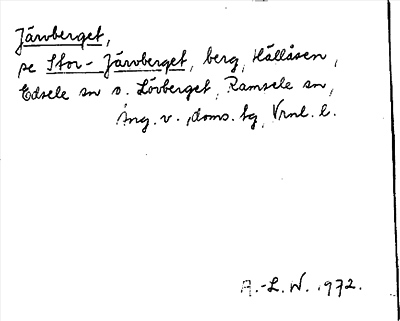 Järvberget,
se Stor-Järvberget, berg, Hällåsen,
Edsele sn o. Lövberget, Ramsele sn,
Ång. v., doms. tg, Vrnl. l.
A.-L. W. 1972.